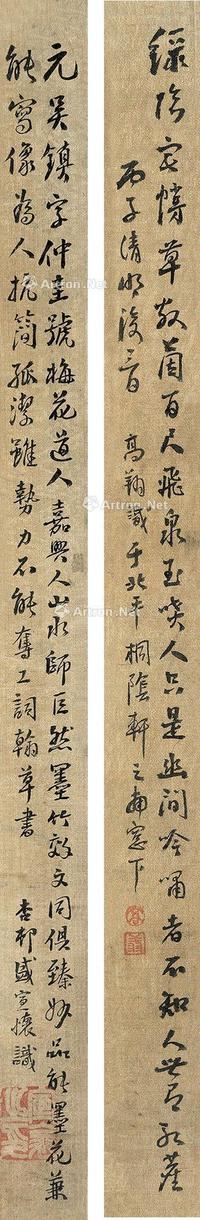 綠陰草敷茵百尺飛泉玉噴人只是幽澗吟嘯者不知人世有紅塵
丙子清明後三日 高翔識于北平桐陰軒之南窗下
元吳鎮字仲圭號梅花道人嘉興人山水師巨然墨竹效文同俱臻妙品能墨花兼
能寫像為人抗簡孤潔雖勢力不能奪工詞翰草書 杏邨盛宣懷識
Artron.Net